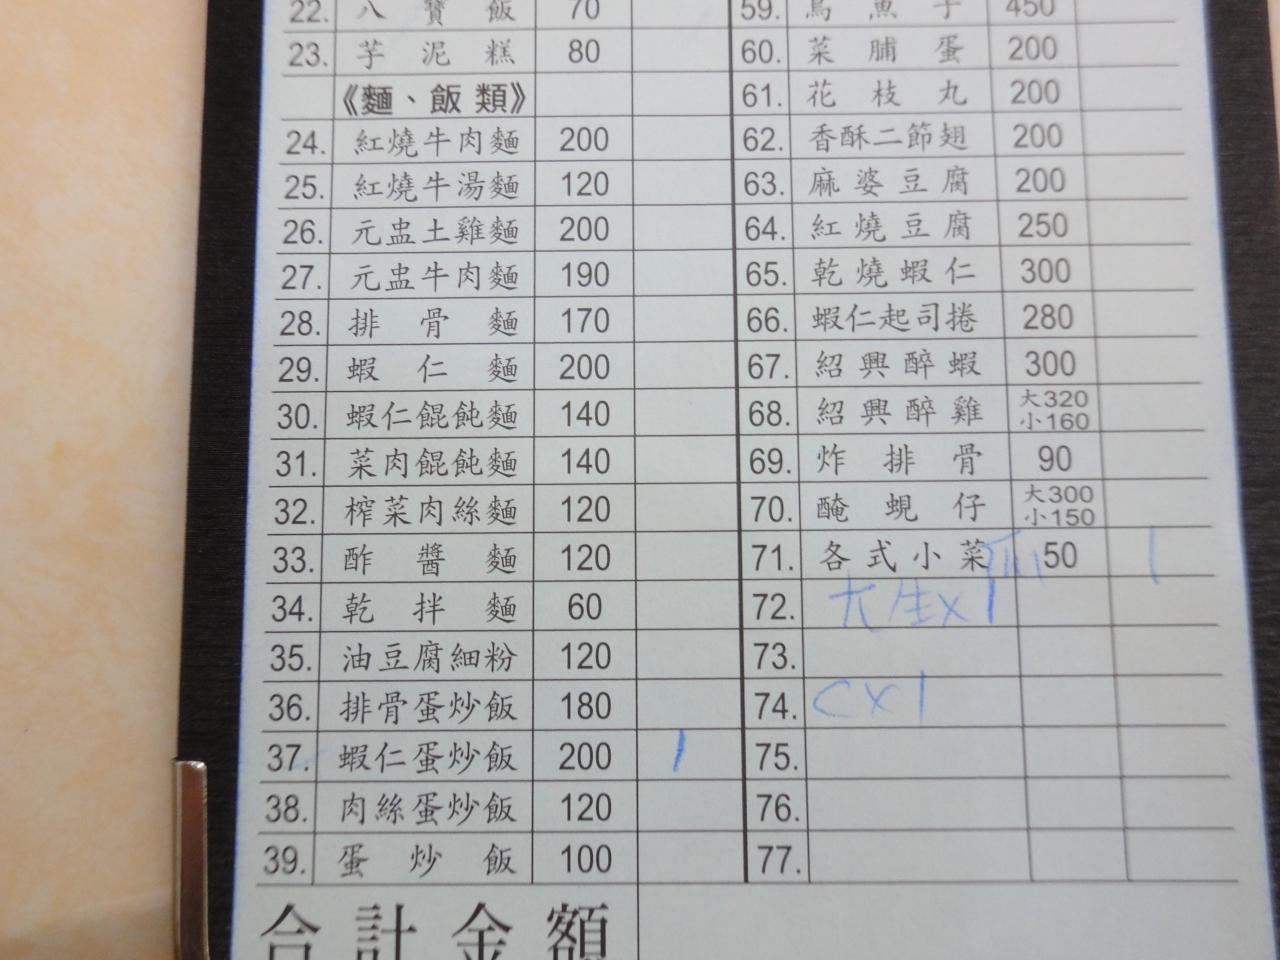 22. 八寶飯 70
23. 芋泥糕 80
《麵、飯類》
24. 紅燒牛肉麵 200
25. 紅燒牛湯麵 120
26. 元盅土雞麵 200
27. 元盅牛肉麵 190
28. 排骨麵 170
29. 蝦仁麵 200
30. 蝦仁餛飩麵 140
31. 菜肉餛飩麵 140
32. 榨菜肉絲麵 120
33. 酢醬麵 120
34. 乾拌麵 60
35. 油豆腐細粉 120
36. 排骨蛋炒飯 180
37. 蝦仁蛋炒飯 200 1
38. 肉絲蛋炒飯 120
39. 蛋炒飯 100
合計金額
59. 烏魚子 450
60. 菜脯蛋 200
61. 花枝丸 200
62. 香酥二節翅 200
63. 麻婆豆腐 200
64. 紅燒豆腐 250
65. 乾燒蝦仁 300
66. 蝦仁起司捲 280
67. 紹興醉蝦 300
68. 紹興醉雞 大320 小160
69. 炸排骨 90
70. 醃蜆仔 大300 小150
71. 各式小菜 50 1
72. x1
73.
74. Cx1
75.
76.
77.